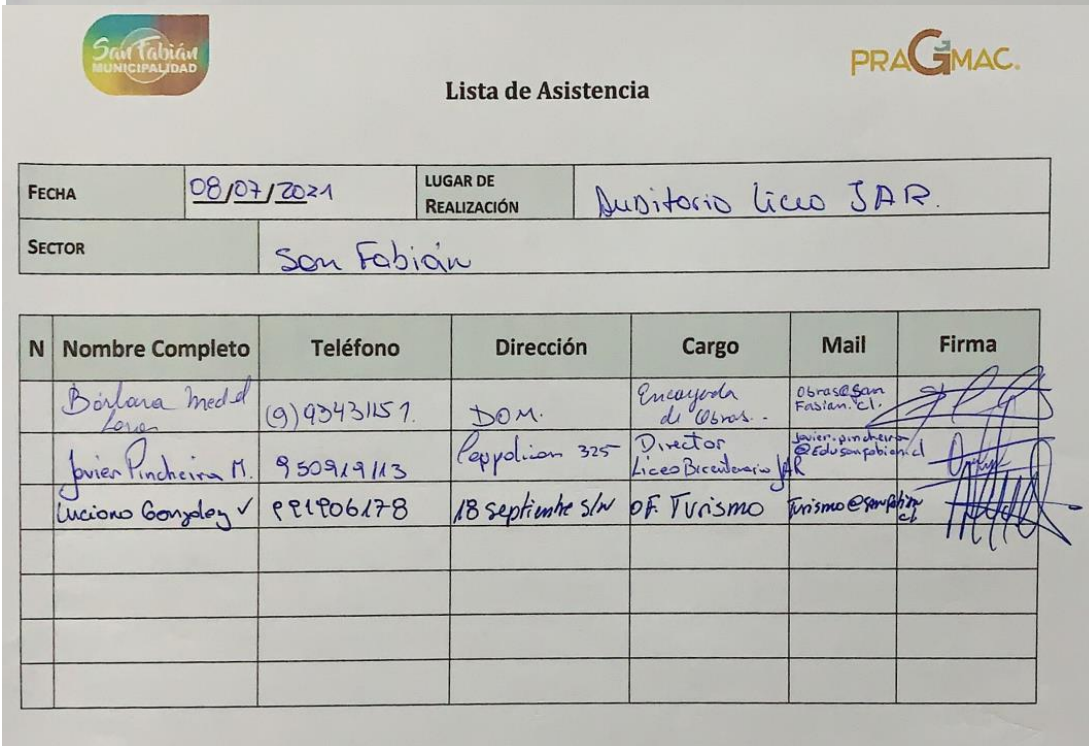 San Fabián
MUNICIPALIDAD
PRAGMAC.
Lista de Asistencia
FECHA 08/07/2021 LUGAR DE REALIZACIÓN Auditorio Liceo JAR.
SECTOR San Fabián
N Nombre Completo Teléfono Dirección Cargo Mail Firma
Bárbara Medel (9)93431157. DOM. Encargada de Obras.. obras@san
Fabian.cl.
Javier Pincheira M. 950919113 325 Director Liceo Bicentenario JAR javier.pincheira
@Edusanfabian.cl
Luciano Gonzalez 991906178 18 septiembre S/N OF. Turismo Turismo@sanfabian
cl